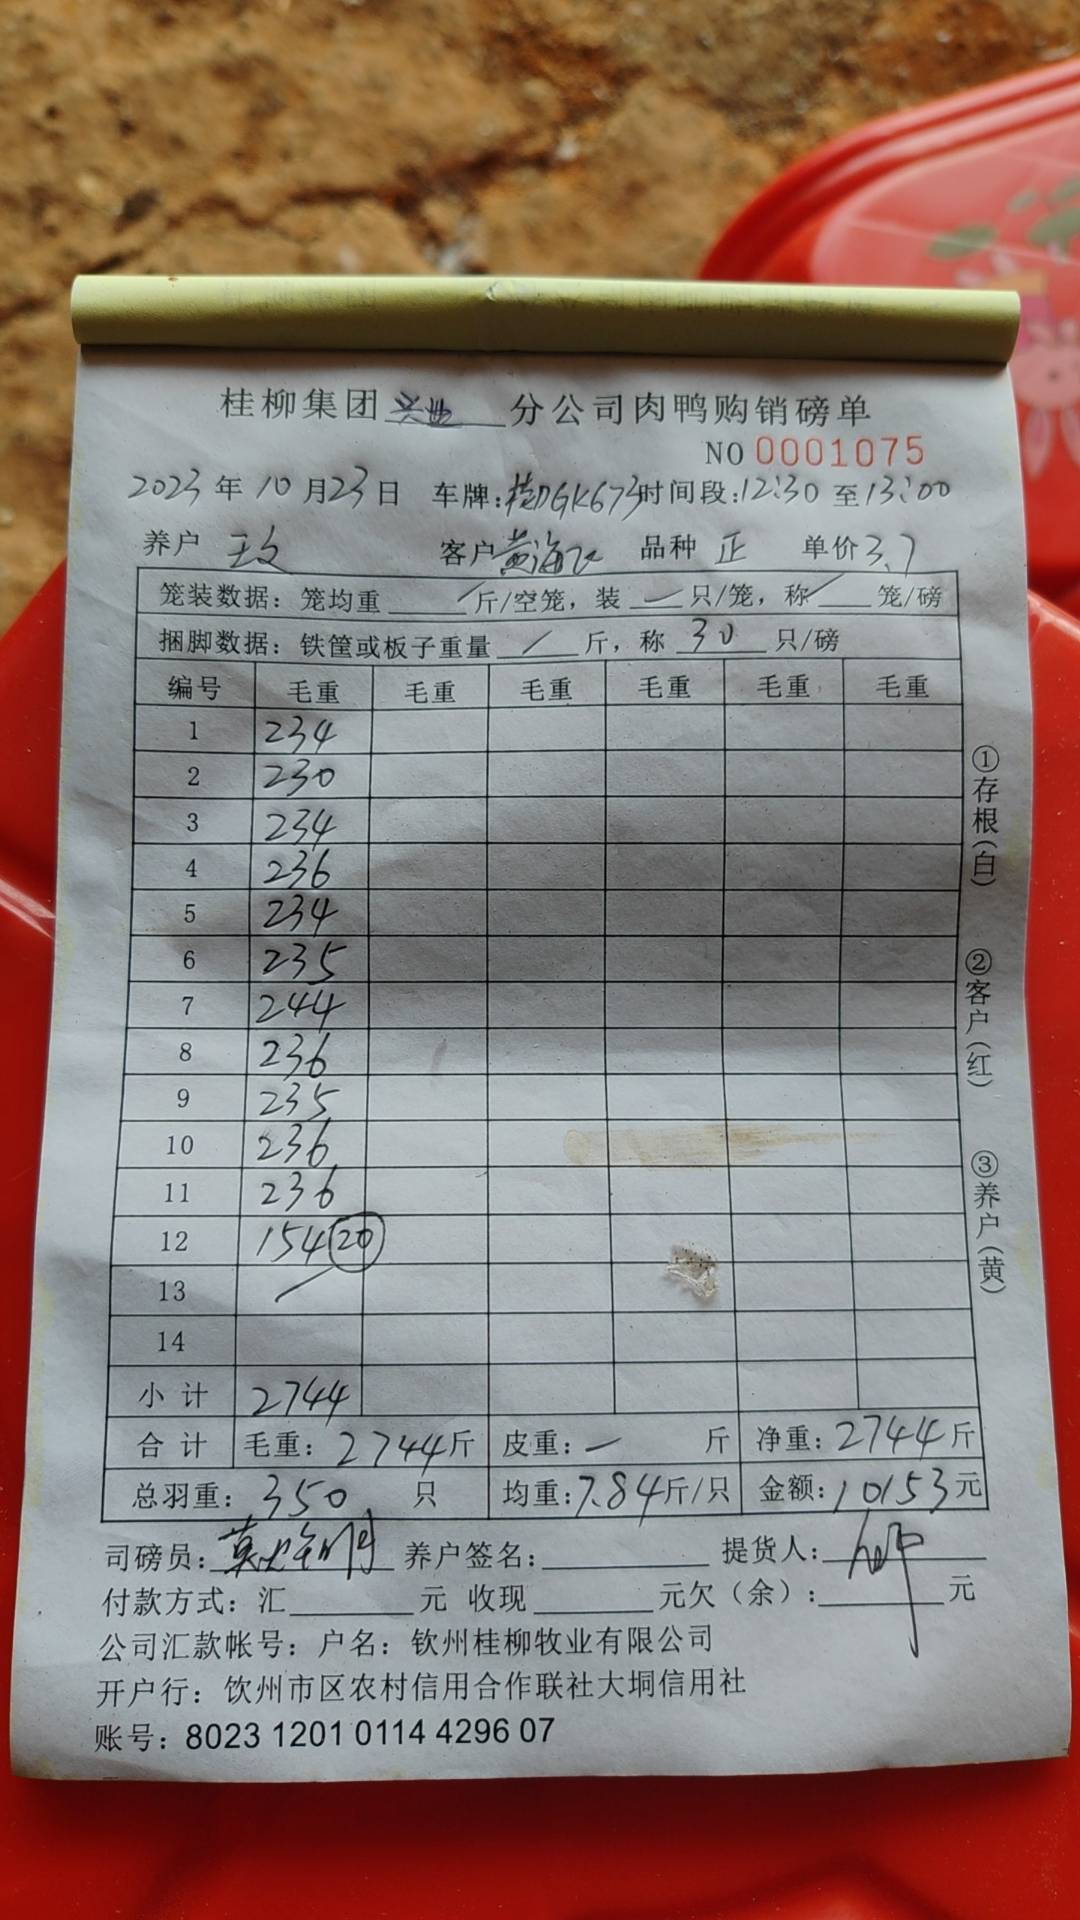 桂柳集团兴业分公司肉鸭购销磅单
NO 0001075
2023年10月23日 车牌:桂DGK673 时间段:12:30至13:00
养户 客户黄海 品种 正 单价3.7
笼装数据：笼均重 / 斤/空笼，装 — 只/笼，称 / 笼/磅
捆脚数据：铁筐或板子重量 / 斤，称 30 只/磅
编号 毛重 毛重 毛重 毛重 毛重 毛重
1 234
2 230
3 234
4 236
5 234
6 235
7 244
8 236
9 235
10 236
11 236
12 154 20
13 /
14
小计 2744
合计 毛重：2744斤 皮重：— 斤 净重：2744斤
总羽重：350 只 均重：7.84斤/只 金额：10153元
司磅员： 养户签名： 提货人：
付款方式：汇 元 收现 元欠（余）： 元
公司汇款帐号：户名：钦州桂柳牧业有限公司
开户行：钦州市区农村信用合作联社大垌信用社
账号：8023 1201 0114 4296 07
①存根（白） ②客户（红） ③养户（黄）